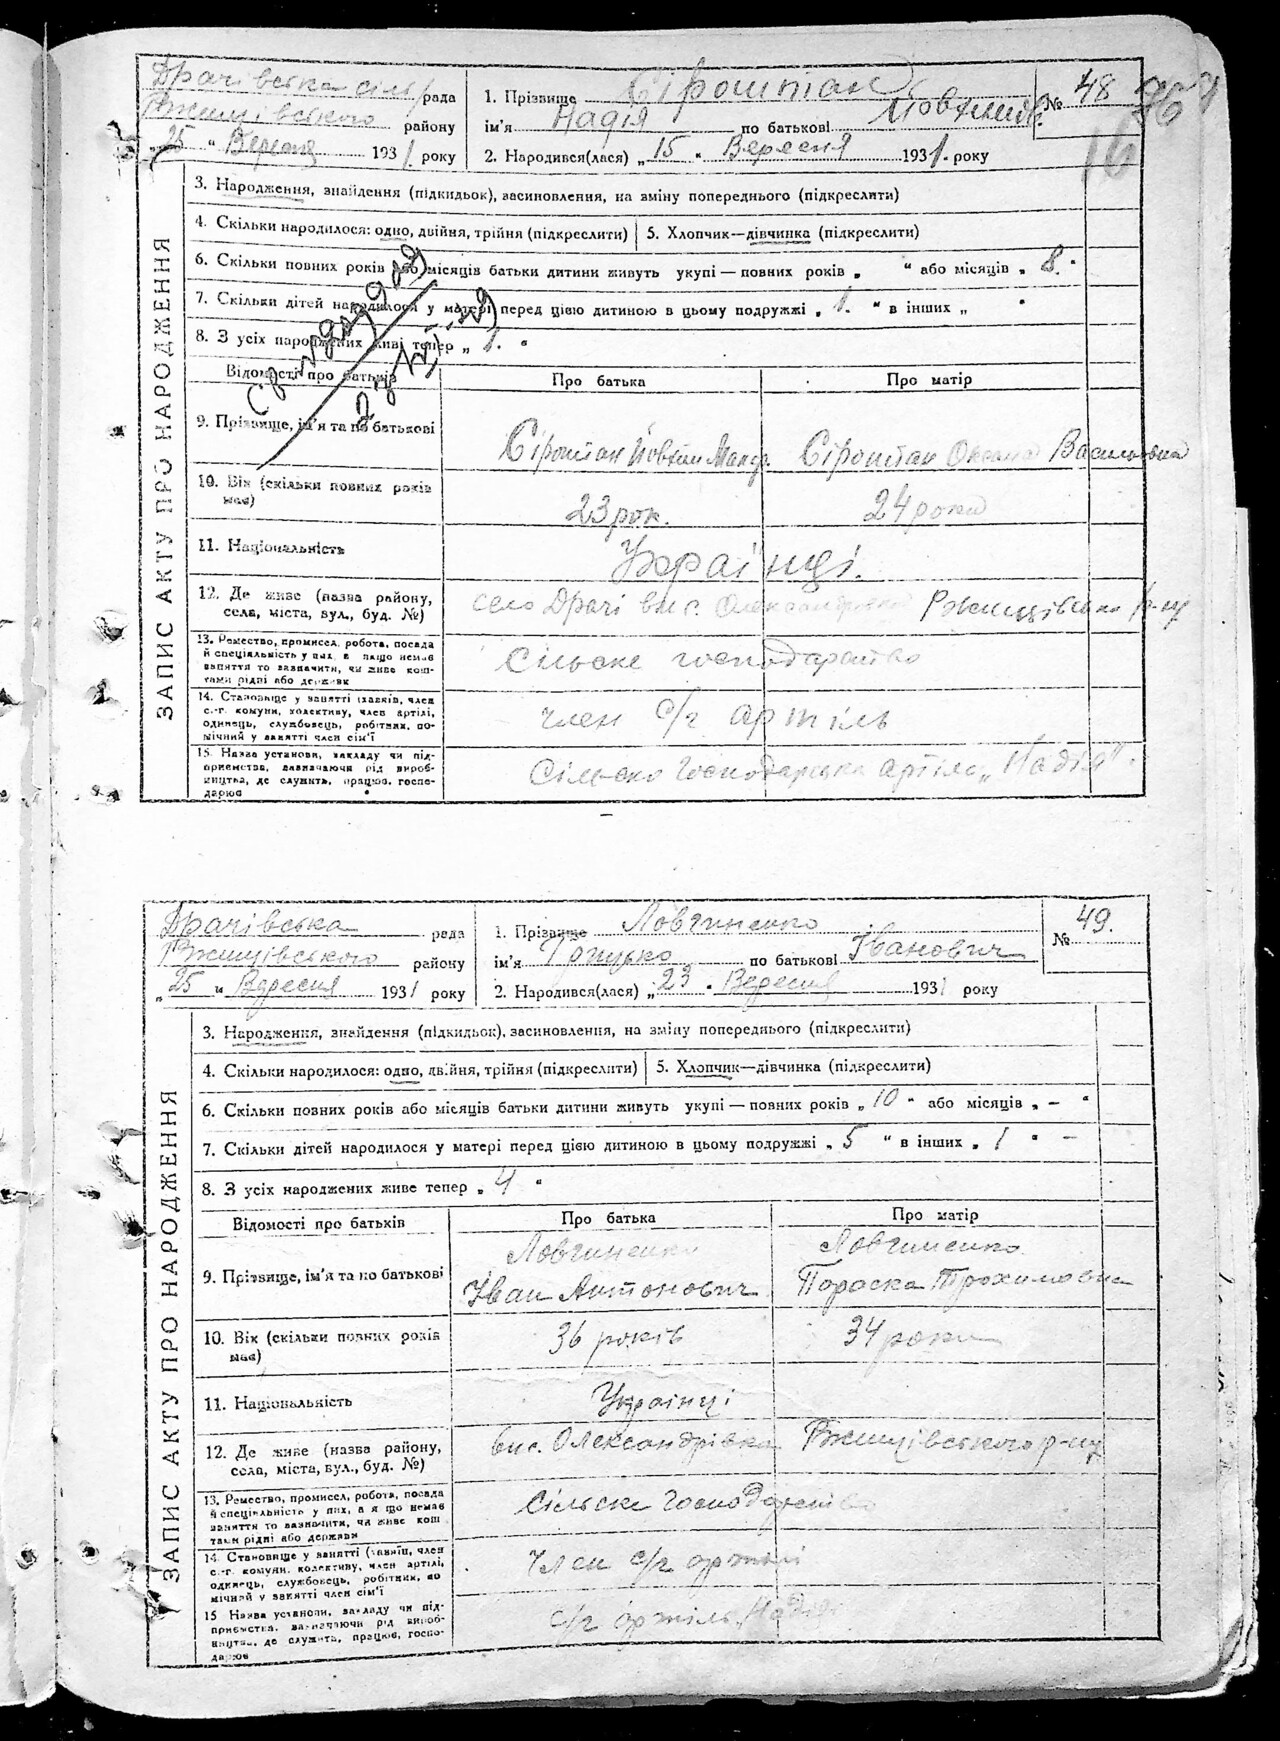 Драчівська сіль рада
Ржищівського району
„ 25 “ Вересня 1931. року
1. Прізвище Сірошпан
ім'я Надія по батькові Йовхимів.
2. Народився(лася) „ 15 “ Вересня 1931. року
№ 48
16
ЗАПИС АКТУ ПРО НАРОДЖЕННЯ
3. Народження, знайдення (підкидьок), засиновлення, на зміну попереднього (підкреслити)
4. Скільки народилося: одно, двійня, трійня (підкреслити)
5. Хлопчик—дівчинка (підкреслити)
6. Скільки повних років або місяців батьки дитини живуть укупі — повних років „ “ або місяців „ 8. “
7. Скільки дітей народилося у матері перед цією дитиною в цьому подружжі „ 1. “ в інших „ “
8. З усіх народжених живі тепер „ 1. “
Відомості про батьків
Про батька
Про матір
9. Прізвище, ім'я та по батькові
Сірошпан Йовхим Макар.
Сірошпан Оксана Васильовна
10. Вік (скільки повних років має)
23 рок.
24 роки
11. Національність
Українці.
12. Де живе (назва району,
села, міста, вул., буд. №)
село Драчі вис. Олександрівка Ржищівськ р-ну
13. Ремество, промисел, робота, посада
й спеціальність у них, а якщо немає
заняття то зазначити, чи живе кош-
тами рідні або держави
Сільске господарство
14. Становище у занятті (хазяїн, член
с.-г. комуни, колективу, член артілі,
одинець, службовець, робітник, по-
мічний у занятті член сім'ї
член с/г артіль
15. Назва установи, закладу чи під-
приємства, зазначаючи рід вироб-
ництва, де служить, працює, госпо-
дарює
Сільско Господарська артіль „Надія“.
Драчівська рада
Ржищівського району
„ 25 “ Вересня 1931 року
1. Прізвище Ловгиненко
ім'я Грицько по батькові Іванович
2. Народився(лася) „ 23 “ Вересня 1931 року
№ 49.
ЗАПИС АКТУ ПРО НАРОДЖЕННЯ
3. Народження, знайдення (підкидьок), засиновлення, на зміну попереднього (підкреслити)
4. Скільки народилося: одно, двійня, трійня (підкреслити)
5. Хлопчик—дівчинка (підкреслити)
6. Скільки повних років або місяців батьки дитини живуть укупі — повних років „ 10 “ або місяців „ – “
7. Скільки дітей народилося у матері перед цією дитиною в цьому подружжі „ 5 “ в інших „ 1 “ –
8. З усіх народжених живе тепер „ 4 “
Відомості про батьків
Про батька
Про матір
9. Прізвище, ім'я та по батькові
Ловгиненко
Іван Антонович
Ловгиненко
Параска Трохимовна
10. Вік (скільки повних років має)
36 років
34 роки
11. Національність
Українці
12. Де живе (назва району,
села, міста, вул., буд. №)
вис. Олександрівка Ржищівського р-ну
13. Ремество, промисел, робота, посада
й спеціальність у них, а якщо немає
заняття то зазначити, чи живе кош
тами рідні або держави
Сільске Господарство
14. Становище у занятті (хазяїн, член
с.-г. комуни, колективу, член артілі,
одинець, службовець, робітник, по
мічний у занятті член сім'ї
член с/г артілі
15 Назва установи, закладу чи під-
приємства, зазначаючи рід вироб-
ництва, де служить, працює, госпо-
дарює
с/г артіль „Надія